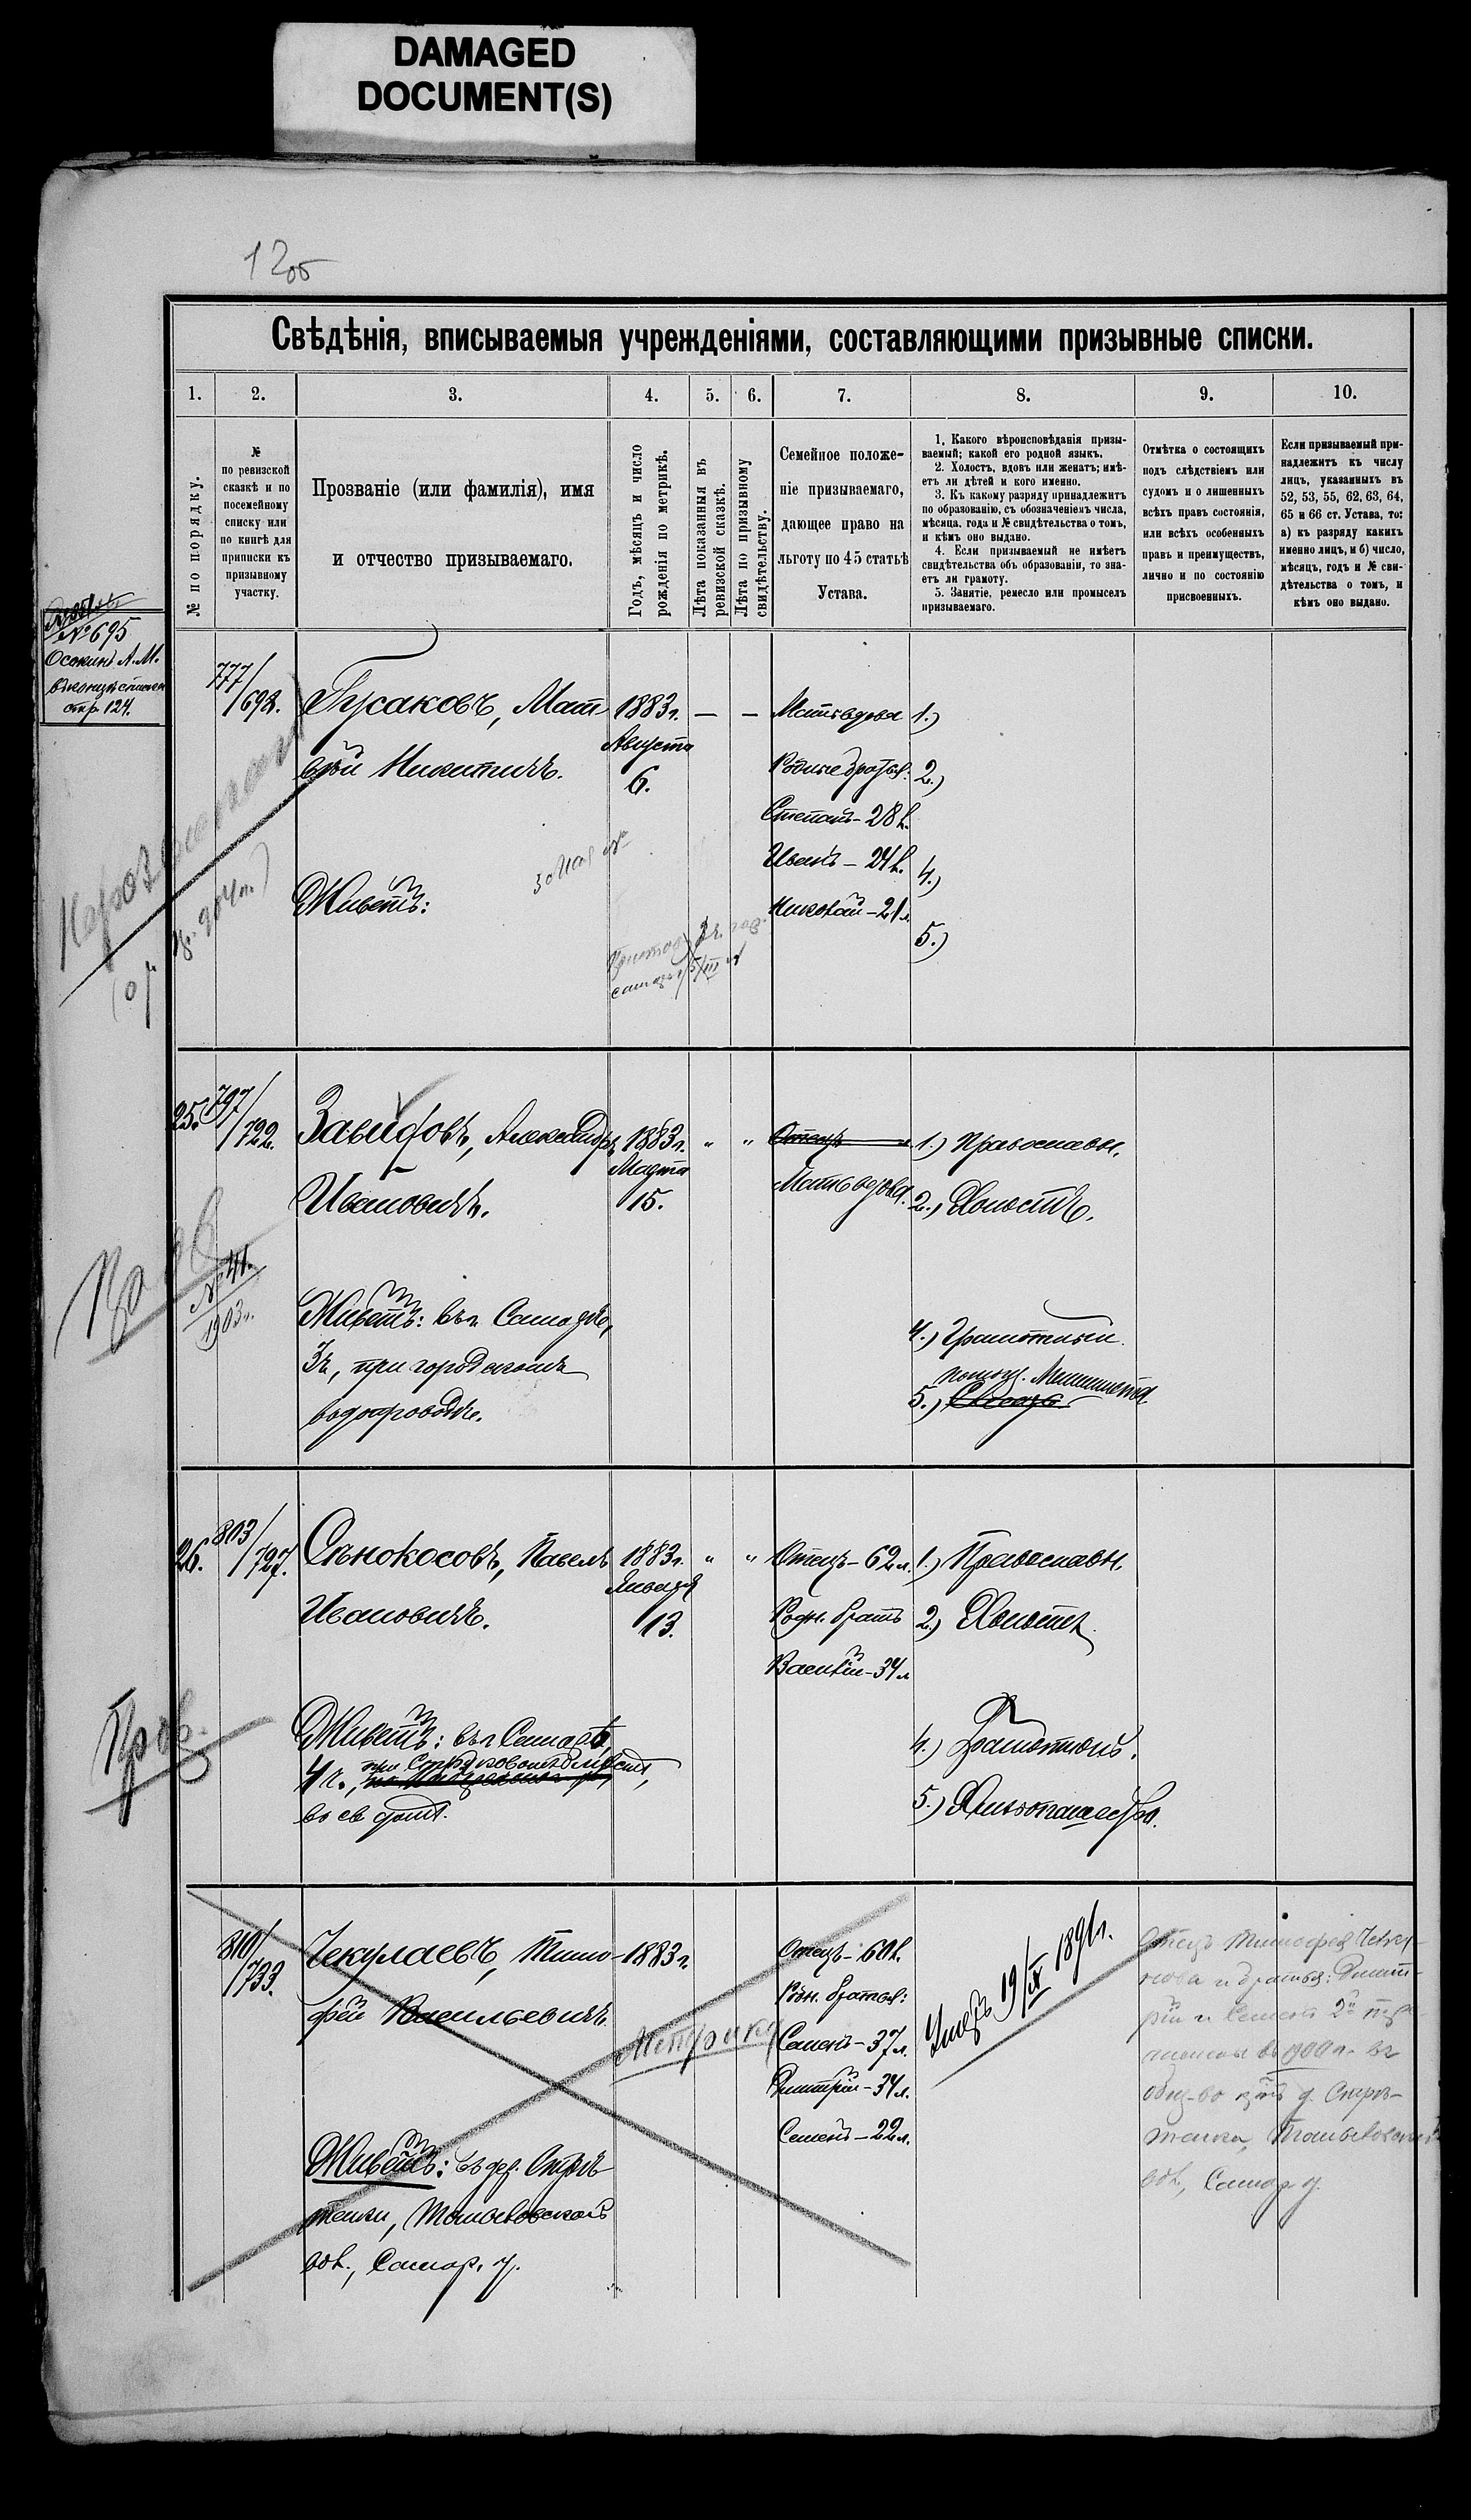 DAMAGED
DOCUMENT(S)
12об
Свѣдѣнія, вписываемыя учрежденіями, составляющими призывные списки.
1. 2. 3. 4. 5. 6. 7. 8. 9. 10.
№ по порядку.
№
по ревизской
сказкѣ и по
посемейному
списку или
по книгѣ для
приписки къ
призывному
участку.
Прозваніе (или фамилія), имя
и отчество призываемаго.
Годъ, мѣсяцъ и число
рожденія по метрикѣ.
Лѣта показанныя въ
ревизской сказкѣ.
Лѣта по призывному
свидѣтельству.
Семейное положе-
ніе призываемаго,
дающее право на
льготу по 45 статьѣ
Устава.
1. Какого вѣроисповѣданія призы-
ваемый; какой его родной языкъ.
2. Холостъ, вдовъ или женатъ; имѣ-
етъ ли дѣтей и кого именно.
3. Къ какому разряду принадлежитъ
по образованію, съ обозначеніемъ числа,
мѣсяца, года и № свидѣтельства о томъ,
и кѣмъ оно выдано.
4. Если призываемый не имѣетъ
свидѣтельства объ образованіи, то зна-
етъ ли грамоту.
5. Занятіе, ремесло или промыселъ
призываемаго.
Отмѣтка о состоящихъ
подъ слѣдствіемъ или
судомъ и о лишенныхъ
всѣхъ правъ состоянія,
или всѣхъ особенныхъ
правъ и преимуществъ,
лично и по состоянію
присвоенныхъ.
Если призываемый при-
надлежитъ къ числу
лицъ, указанныхъ въ
52, 53, 55, 62, 63, 64,
65 и 66 ст. Устава, то:
а) къ разряду какихъ
именно лицъ, и б) число,
мѣсяцъ, годъ и № сви-
дѣтельства о томъ, и
кѣмъ оно выдано.
№ 695
Осокинъ А. М.
стр. 124.
777/698.
Гусаковъ, Мат-
вѣй Никитичъ.
Живетъ:
1883 г.
Августа
6.
— —
Мать вдова
Родные братья:
Степанъ - 28 л.
Иванъ - 24 л.
Николай - 21 л.
1.)
2.)
4.)
5.)
25. 797/722.
Завидовъ, Александръ
Ивановичъ.
Живетъ: въ г. Самарѣ,
3 ч., при городскомъ
водопроводѣ.
1883 г.
Марта
15.
" "
Отецъ
Мать вдова.
1.) Православн.
2.) Холостъ.
4.) Грамотный.
5.) помощ. Машиниста
Слесарь.
Пров
№ 41.
1903 г.
26. 803/727.
Сѣнокосовъ, Павелъ
Ивановичъ.
Живетъ: въ г. Самарѣ,
4 ч.,
въ св. домѣ.
1883 г.
Января
13.
" "
Отецъ - 62 л.
Родн. братъ
Василій - 34 л.
1.) Православн.
2.) Холостъ.
4.) Грамотный.
5.) Хлѣбопашество.
Пров.
810/733.
Чекулаевъ, Тимо-
фей Васильевичъ.
Живетъ: въ дер.
волк., Самар. у.
1883 г.
Метрика
Отецъ - 60 л.
Родн. братья:
Семенъ - 37 л.
Дмитрій - 34 л.
Семенъ - 22 л.
Умеръ 19/IX 1891 г.
Самар. у.